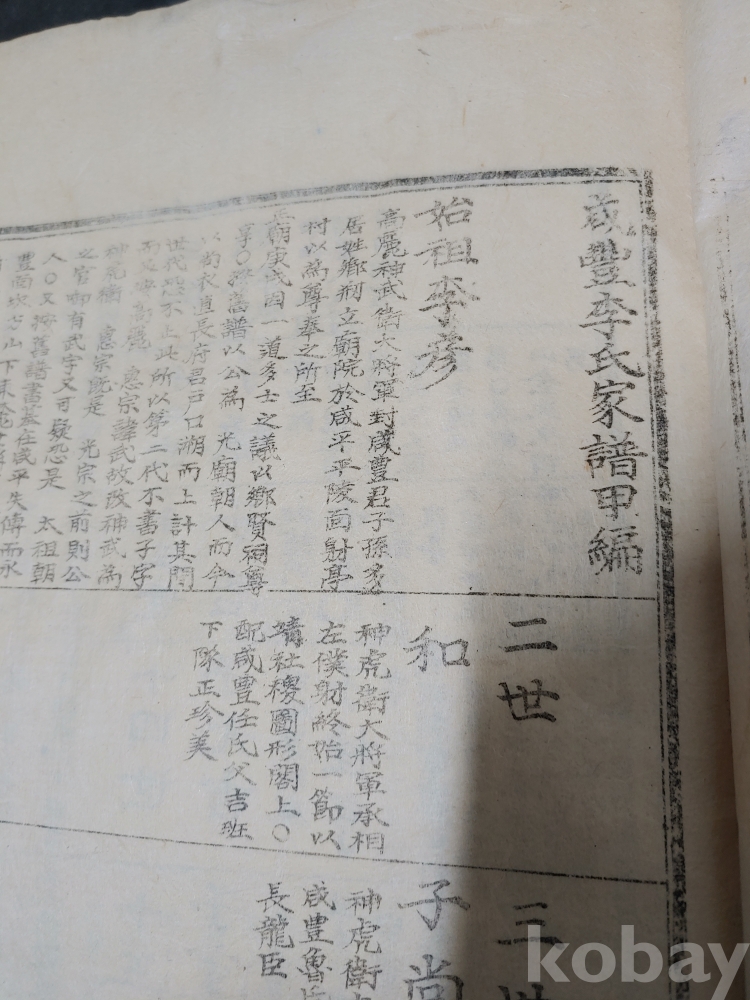 咸豐李氏家譜甲編
始祖李彦
高麗神武衛大將軍封咸豐君子孫多
居姓鄉刱立廟院於咸平平陵面射亭
村以爲尊奉之所至
正朝庚戌因一道多士之議以鄉賢祠尊
享〇按舊譜以公爲 光廟朝人而今
以 衣道長 君戸口溯而上計其間
世代恐不止此所以第二代不書子字
而又按高麗 惠宗諱武故改神武爲
神虎衛 惠宗旣是 光宗之前則公
之官啣有武字又可疑恐是 太祖朝
人〇又按舊譜書墓在咸平失傳而永
豐面坎 山下
二世
和
神虎衛大將軍承相
左僕射終始一節以
靖社稷圖形閣上〇
配咸豐任氏父吉班
下隊正珍美
三世
子尚
神虎衛大
咸豐魯氏
長龍臣
kobay